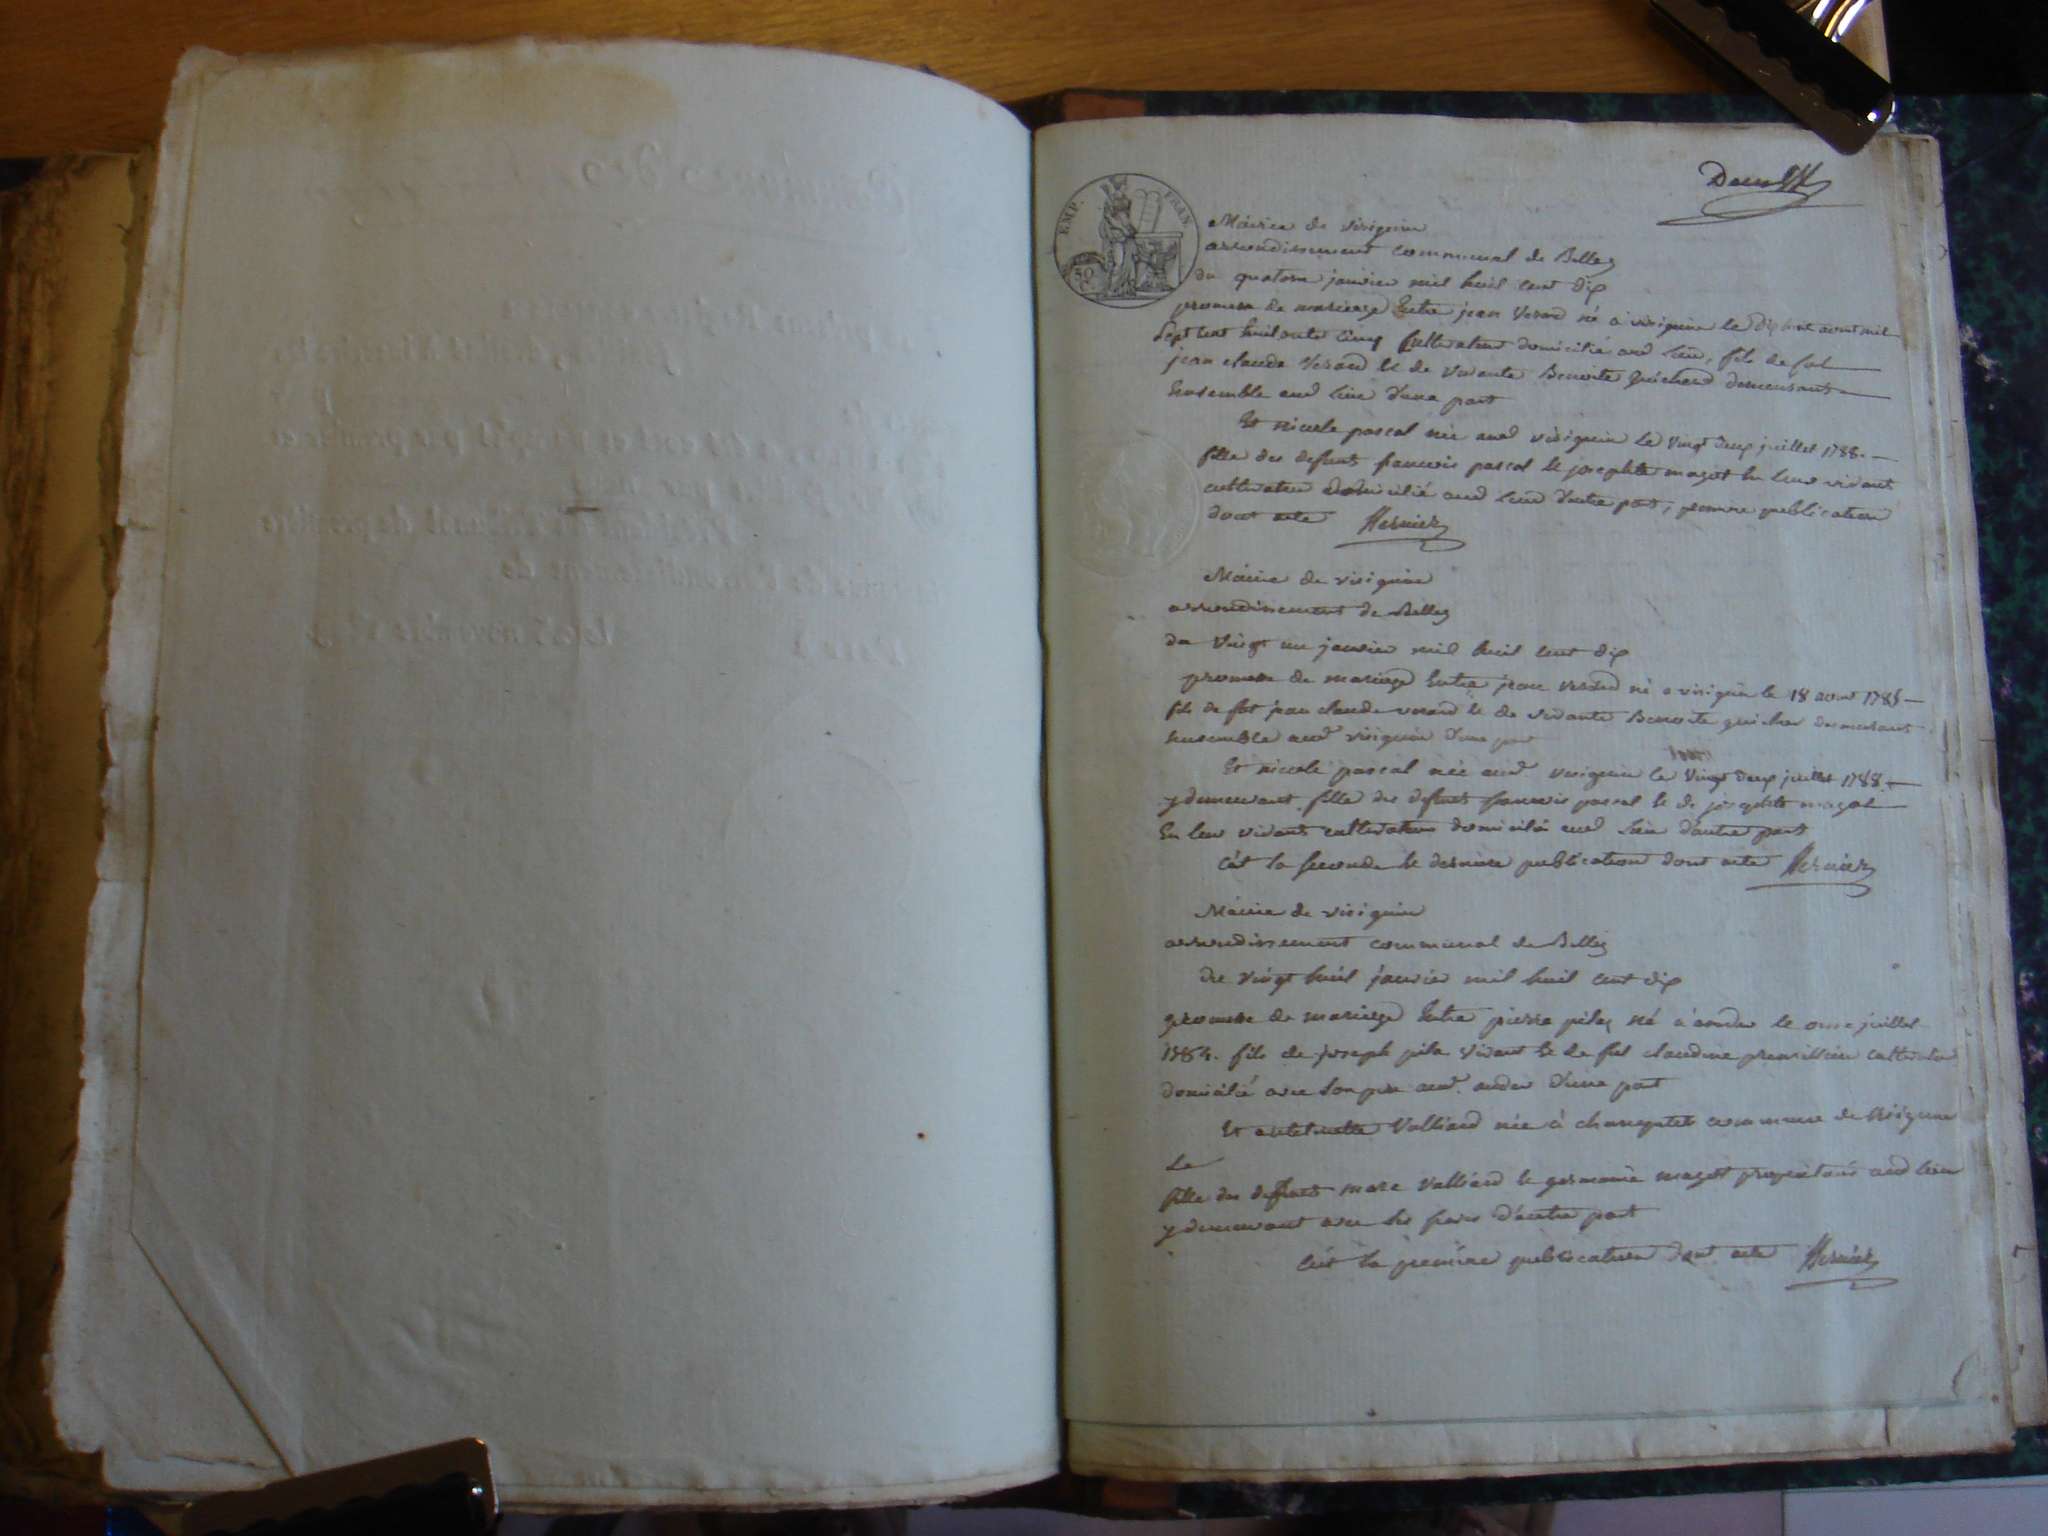 EMP. FRAN.
50 C.
Mairie de virignin
arrondissement communal de Belley
du quatorze janvier mil huit cent dix
promesse de mariage Entre jean né a virignin le dix huit aout mil
Sept cent huitante Cinq Cultivateur domicilié aud lieu, fils de fut
jean claude et de vivante Benoite Guichard demeurants
Ensemble aud lieu d'une part
Et nicole pascal née aud virignin le vingt deux juillet 1788.
fille des defunts francois pascal et josephte magot En leur vivant
cultivateur domicilié aud lieu d'autre part, premiere publication
dont acte
Mairie de virignin
arrondissement de Belley
du vingt un janvier mil huit cent dix
promesse de mariage Entre jean né a virignin le 18 aout 1785
fils de fut jean claude et de vivante Benoite guichar demeurant
Ensemble aud virignin d'une part
Et nicole pascal née aud. virignin le vingt deux juillet 1788.
y demeurant. fille des defunts francois pascal et de josephte magot
En leur vivant cultivateur domicilié aud lieu d'autre part
C'est la seconde et derniere publication dont acte
Mairie de virignin
arrondissement communal de Belley
du vingt huit janvier mil huit cent dix
promesse de mariage Entre pierre né a le onze juillet
fils de joseph vivant et de fut claudine cultivateur
domicilié avec son pere aud. d'une part
Et Valliard née à commune de Virignin
Le
fille des defunts marc Valliard et germaine magot aud lieu
y demeurant avec ses d'autre part
C'est la premiere publication dont acte